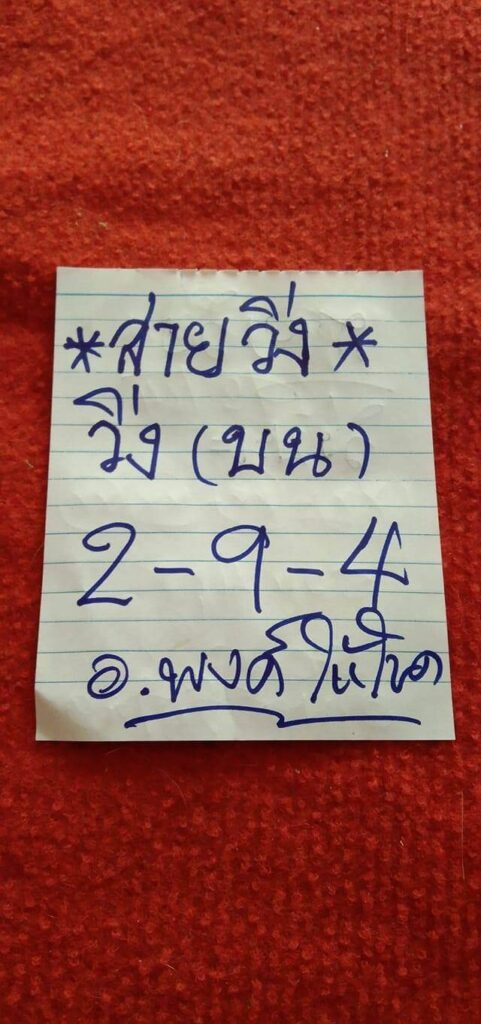 *สายวิ่ง*
วิ่ง (บน)
2-9-4
อ.พงค์ ให้โชค